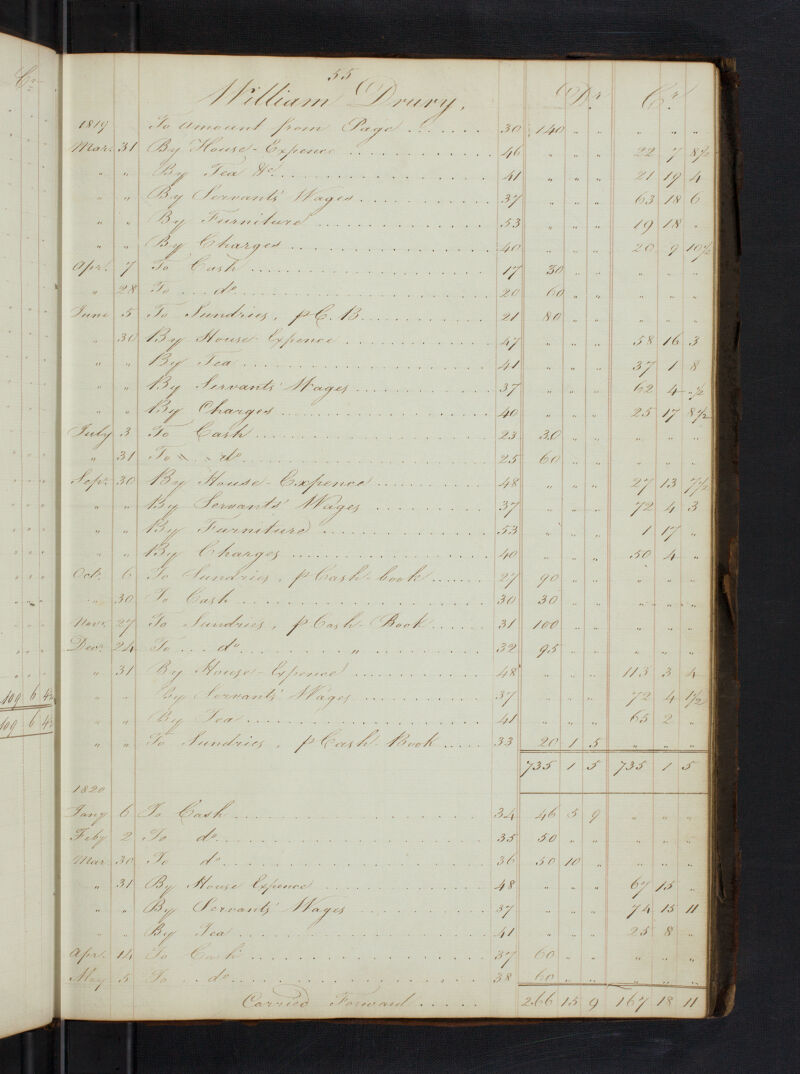 Cr
55
William Drury. Dr Cr
1819 To Amount from Page 30 140 " " " " "
Mar. 31 By House-Expence 46 " " " 22 7 8½
" " By Tea &c. 41 " " " 21 19 4
" " By Servants' Wages 37 " " " 63 18 6
" " By Furniture 53 " " " 19 18 "
" " By Charges 40 " " " 20 9 10½
Apr. 7 To Cash 17 30 " " " " "
" 28 To do 20 60 " " " " "
June 5 To Sundries, p C. B. 21 80 " " " " "
" 30 By House Expence 47 " " " 58 16 3
" " By Tea 41 " " " 37 1 8
" " By Servants Wages 37 " " " 62 4 "½
" " By Charges 40 " " " 25 17 8½
July 3 To Cash 23 30 " " " " "
" 31 To " do 25 60 " " " " "
Sepr. 30 By House-Expence 48 " " " 27 13 7½
" " By Servants' Wages 37 " " " 72 4 3
" " By Furniture 53 " " " 1 17 "
" " By Charges 40 " " " 50 4 "
Oct. 6 To Sundries, p Cash-book 27 90 " " " " "
" 30 To Cash 30 30 " " " " "
Novr. 27 To Sundries, p Cash-Book 31 100 " " " " "
Dec. 24 To do " 32 95 " " " " "
" 31 By House-Expence 48 " " " 113 3 4
" " By Servants' Wages 37 " " " 72 4 1½
" " By Tea 41 " " " 65 2 "
" " To Sundries, p Cash-Book 33 20 1 5 " " "
735 1 5 735 1 5
1820
Jany 6 To Cash 34 46 5 9 " " "
Feby 2 To do 35 50 " " " " "
Mar 30 To do 36 50 10 " " " "
" 31 By House Expence 48 " " " 67 15 "
" " By Servants' Wages 37 " " " 74 15 11
" " By Tea 41 " " " 25 8 "
Apr. 14 To Cash 37 60 " " " " "
May 5 To do 38 60 " " " " "
Carried Forward 266 15 9 167 18 11
109 6 4½
109 6 4½